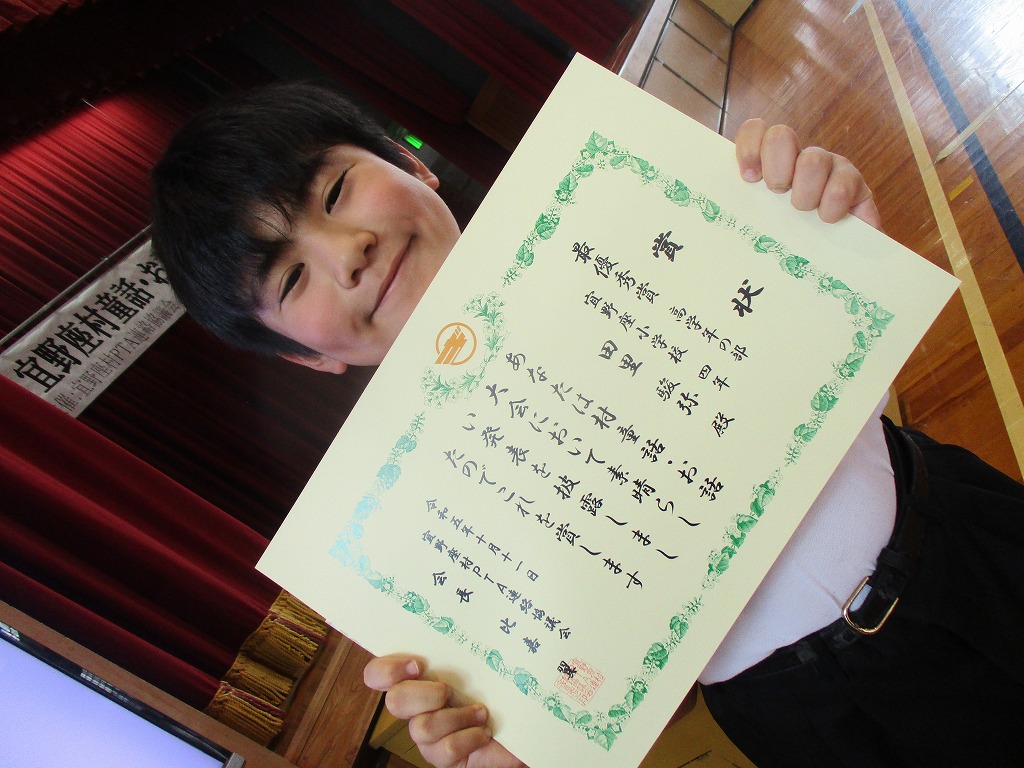 宜野座村童話・お
催:宜野座村PTA連絡協議会
賞状
最優秀賞 高学年の部
宜野座小学校 四年
田里 駿弥 殿
あなたは村童話・お話
大会において素晴らし
い発表を披露しまし
たのでこれを賞します
令和五年十月十一日
宜野座村PTA連絡協議会
会長 比嘉